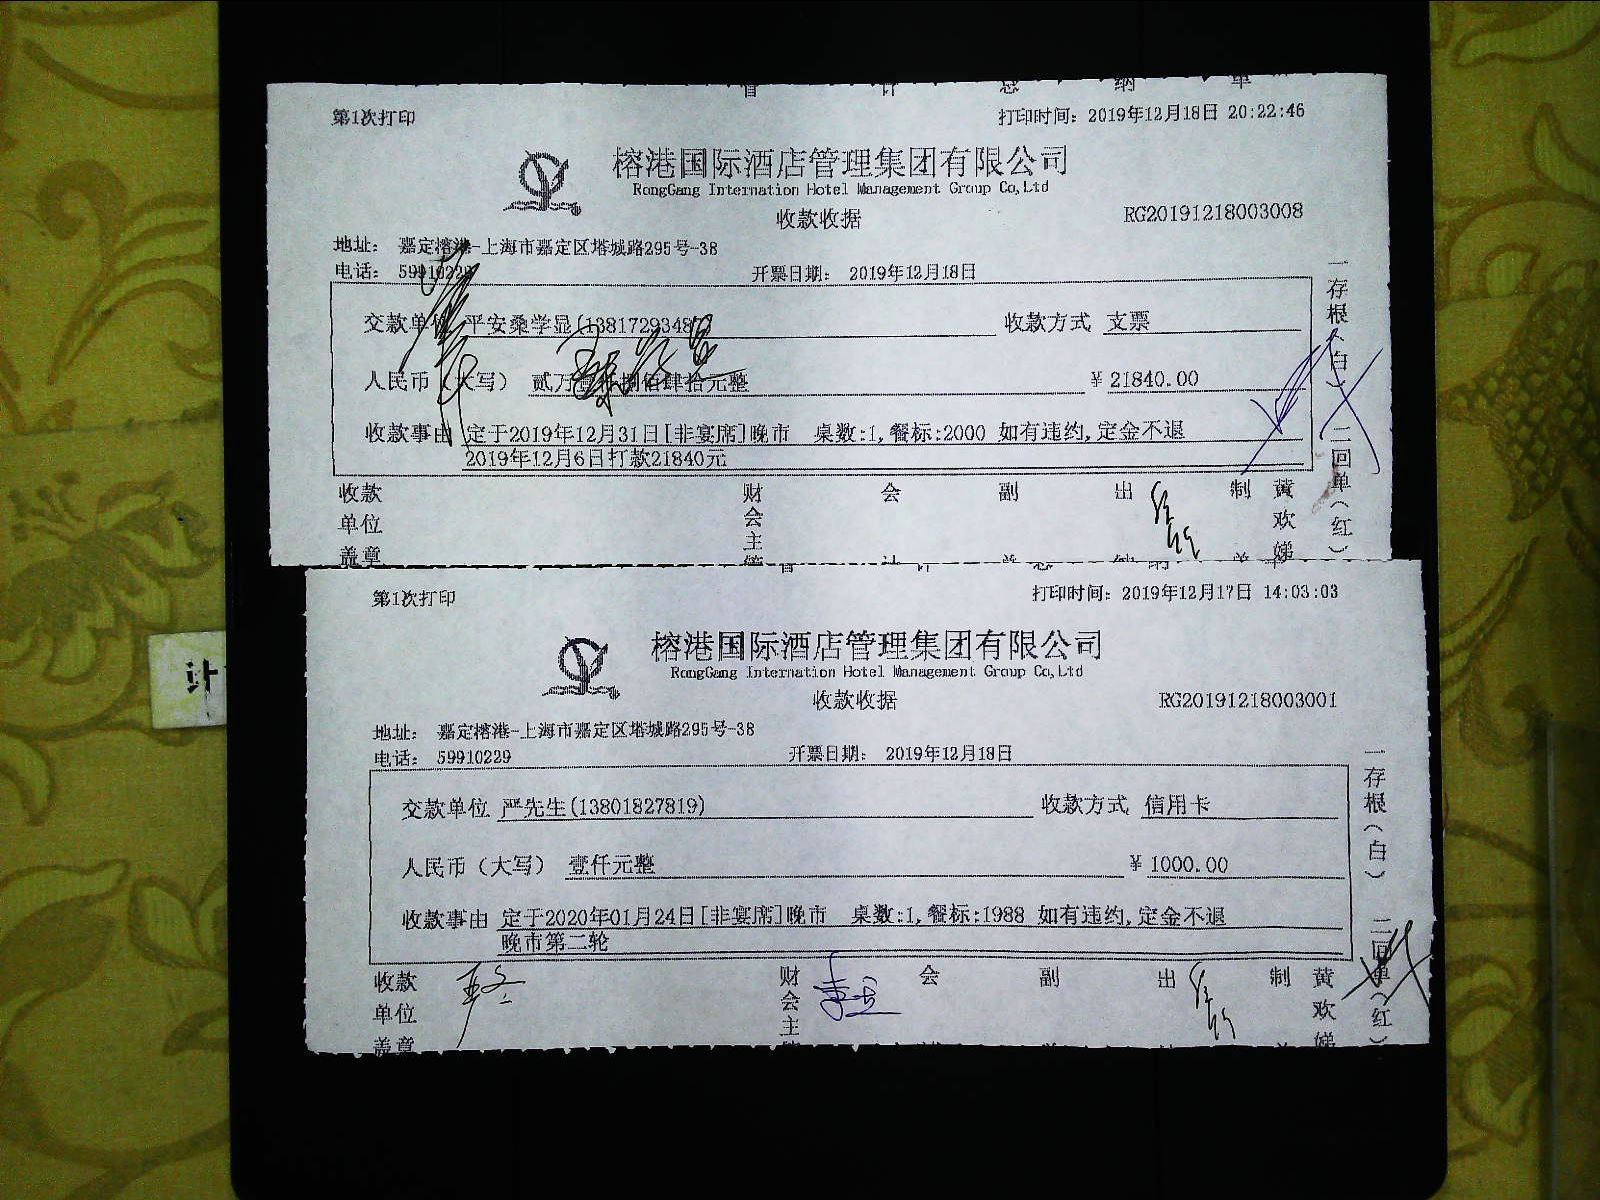 第1次打印 打印时间：2019年12月18日 20:22:46
榕港国际酒店管理集团有限公司
RongGang Internation Hotel Management Group Co,Ltd
收款收据 RG20191218003008
地址： 嘉定榕港-上海市嘉定区塔城路295号-38
电话： 59910229 开票日期： 2019年12月18日
交款单位 平安桑学显(1381729348 收款方式 支票
人民币（大写） 贰万壹仟捌佰肆拾元整 ¥ 21840.00
收款事由 定于2019年12月31日[非宴席]晚市 桌数:1,餐标:2000 如有违约,定金不退
2019年12月6日打款21840元
一存根（白） 二回单（红）
收款 财 会 副 出 制 黄
单位 会 欢
盖章 主 娣
计
第1次打印 打印时间：2019年12月17日 14:03:03
榕港国际酒店管理集团有限公司
RongGang Internation Hotel Management Group Co,Ltd
收款收据 RG20191218003001
地址： 嘉定榕港-上海市嘉定区塔城路295号-38
电话： 59910229 开票日期： 2019年12月18日
交款单位 严先生(13801827819) 收款方式 信用卡
人民币（大写） 壹仟元整 ¥ 1000.00
收款事由 定于2020年01月24日[非宴席]晚市 桌数:1,餐标:1988 如有违约,定金不退
晚市第二轮
一存根（白） 二回单（红）
收款 财 会 副 出 制 黄
单位 会 欢
盖章 主 娣